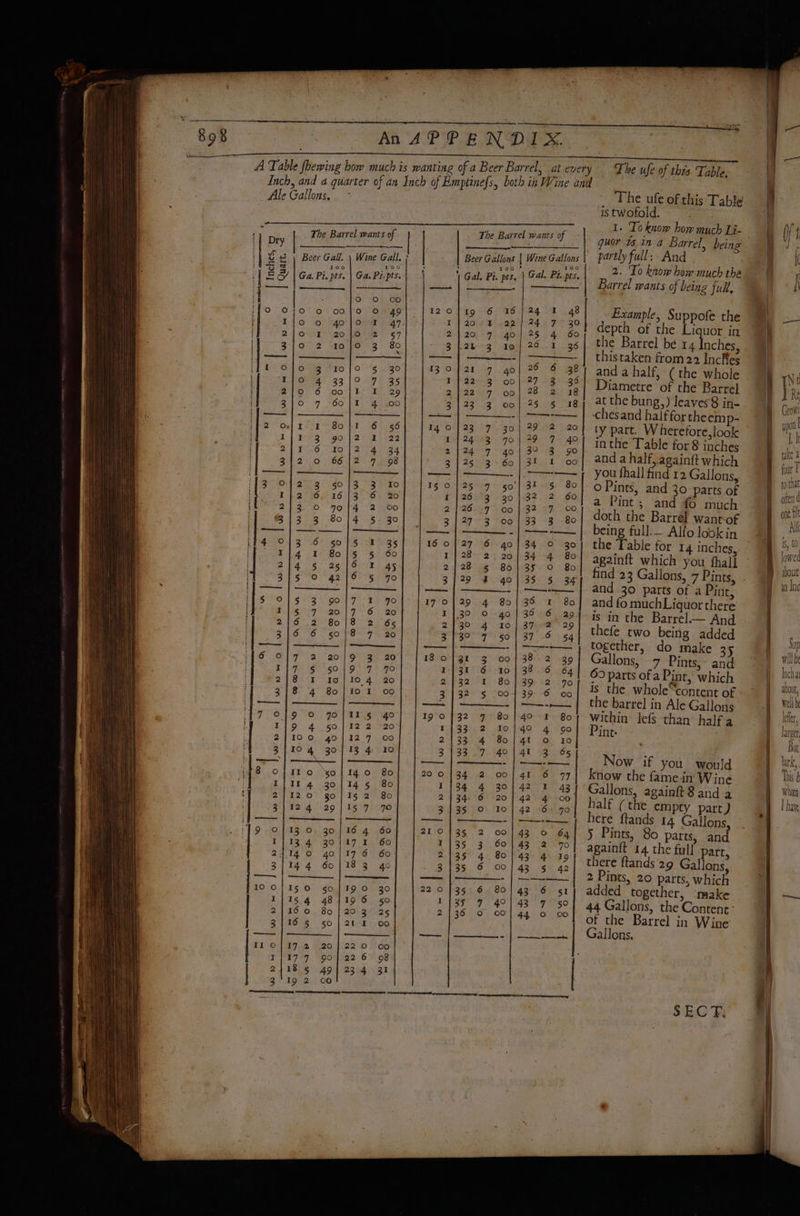 898 An APPENDIX.
A Table ſhewing how much is wanting of a Beer Barrel, at every
Inch, and a quarter of an Inch of Emptineſs, both in Wine and
Ale Gallons.
Dry Inches, Quart. | The Barrel wants of
Beer Gall. | Wine Gall.
100 | 100
Ga. Pi. pts. | Ga. Pi. pts.
0 0 00
0 0 | 0 0 00 | 0 0 49
1 | 0 0 40 | 0 1 47
2 | 0 1 20 | 0 2 57
3 | 0 2 10 | 0 3 80
1 0 | 0 3 10 | 0 5 30
1 | 0 4 33 | 0 7 35
2 | 0 6 00 | 1 1 29
3 | 0 7 60 | 1 4 00
2 0 | 1 1 80 | 1 6 56
1 | 1 3 90 | 2 1 22
2 | 1 6 10 | 2 4 34
3 | 2 0 66 | 2 7 98
3 0 | 2 3 50 | 3 3 10
1 | 2 6 16 | 3 6 20
2 | 3 0 70 | 4 2 00
3 | 3 3 80 | 4 5 30
4 0 | 3 6 50 | 5 1 35
1 | 4 1 80 | 5 5 60
2 | 4 5 25 | 6 1 45
3 | 5 0 42 | 6 5 70
5 0 | 5 3 90 | 7 1 70
1 | 5 7 20 | 7 6 20
2 | 6 2 80 | 8 2 65
3 | 6 6 50 | 8 7 20
6 0 | 7 2 20 | 9 3 20
1 | 7 5 50 | 9 7 70
2 | 8 1 10 | 10 4 20
3 | 8 4 80 | 10 1 00
7 0 | 9 0 70 | 11 5 40
1 | 9 4 50 | 12 2 20
2 | 10 0 40 | 12 7 00
3 | 10 4 30 | 13 4 10
8 0 | 11 0 30 | 14 0 80
1 | 11 4 30 | 14 5 80
2 | 12 0 30 | 15 2 80
3 | 12 4 29 | 15 7 70
9 0 | 13 0 30 | 16 4 60
1 | 13 4 30 | 17 1 60
2 | 14 0 40 | 17 6 60
3 | 14 4 60 | 18 3 40
10 0 | 15 0 50 | 19 0 30
1 | 15 4 48 | 19 6 50
2 | 16 0 80 | 20 3 25
3 | 16 5 50 | 21 1 00
11 0 | 17 2 20 | 22 0 00
1 | 17 7 90 | 22 6 98
2 | 18 5 49 | 23 4 31
3 | 19 2 00
The Barrel wants of
Beer Gallons | Wine Gallons
100 | 100
Gal. Pi. pts. | Gal. Pi. pts.
12 0 | 19 6 16 | 24 1 48
1 | 20 1 22 | 24 7 30
2 | 20 7 40 | 25 4 60
3 | 21 3 10 | 26 1 36
13 0 | 21 7 40 | 26 6 38
1 | 22 3 00 | 27 3 36
2 | 22 7 00 | 28 2 18
3 | 23 3 00 | 25 5 18
14 0 | 23 7 30 | 29 2 20
1 | 24 3 70 | 29 7 40
2 | 24 7 40 | 30 3 90
3 | 25 3 60 | 31 1 00
15 0 | 25 7 50 | 31 5 80
1 | 26 3 30 | 32 2 60
2 | 26 7 00 | 32 7 00
3 | 27 3 00 | 33 3 80
16 0 | 27 6 40 | 34 0 30
1 | 28 2 20 | 34 4 80
2 | 28 5 80 | 35 0 80
3 | 29 1 40 | 35 5 34
17 0 | 29 4 80 | 36 1 80
1 | 30 0 40 | 36 6 29
2 | 30 4 10 | 37 2 29
3 | 30 7 50 | 37 6 54
18 0 | 31 3 00 | 38 2 39
1 | 31 6 10 | 38 6 64
2 | 32 1 80 | 39 2 70
3 | 32 5 00 | 39 6 00
19 0 | 32 7 80 | 40 1 80
1 | 33 2 10 | 40 4 90
2 | 33 4 80 | 41 0 10
3 | 33 7 40 | 41 3 65
20 0 | 34 2 00 | 41 6 77
1 | 34 4 30 | 42 1 43
2 | 34 6 20 | 42 4 00
3 | 35 0 10 | 42 6 70
21 0 | 35 2 00 | 43 0 64
1 | 35 3 60 | 43 2 70
2 | 35 4 80 | 43 4 19
3 | 35 6 00 | 43 5 42
22 0 | 35 6 80 | 43 6 51
1 | 35 7 40 | 43 7 50
2 | 36 0 00 | 44 0 00
The uſe of this Table.
The uſe of this Table
is twofold.
1. To know how much Li-
quor is in a Barrel, being
partly full: And
2. To know how much the
Barrel wants of being full.
Example, Suppoſe the
depth of the Liquor in
the Barrel be 14 Inches,
this taken from 22 Inches
and a half, (the whole
Diametre of the Barrel
at the bung,) leaves 8 in-
ches and half for the emp-
ty part. Wherefore, look
in the Table for 8 inches
and a half, againſt which
you ſhall find 12 Gallons,
0 Pints, and 30 parts of
a Pint; and ſo much
doth the Barrel want of
being full.— Alſo look in
the Table for 14 inches,
againſt which you ſhall
find 23 Gallons, 7 Pints,
and 30 parts of a Pint,
and ſo much Liquor there
is in the Barrel.— And
theſe two being added
together, do make 35
Gallons, 7 Pints, and
60 parts of a Pint, which
is the whole content of
the barrel in Ale Gallons
within leſs than half a
Pint.
Now if you would
know the ſame in Wine
Gallons, againſt 8 and a
half (the empty part)
here ſtands 14 Gallons,
5 Pints, 80 parts, and
againſt 14 the full part,
there ſtands 29 Gallons,
2 Pints, 20 parts, which
added together, make
44 Gallons, the Content
of the Barrel in Wine
Gallons.
SECT.